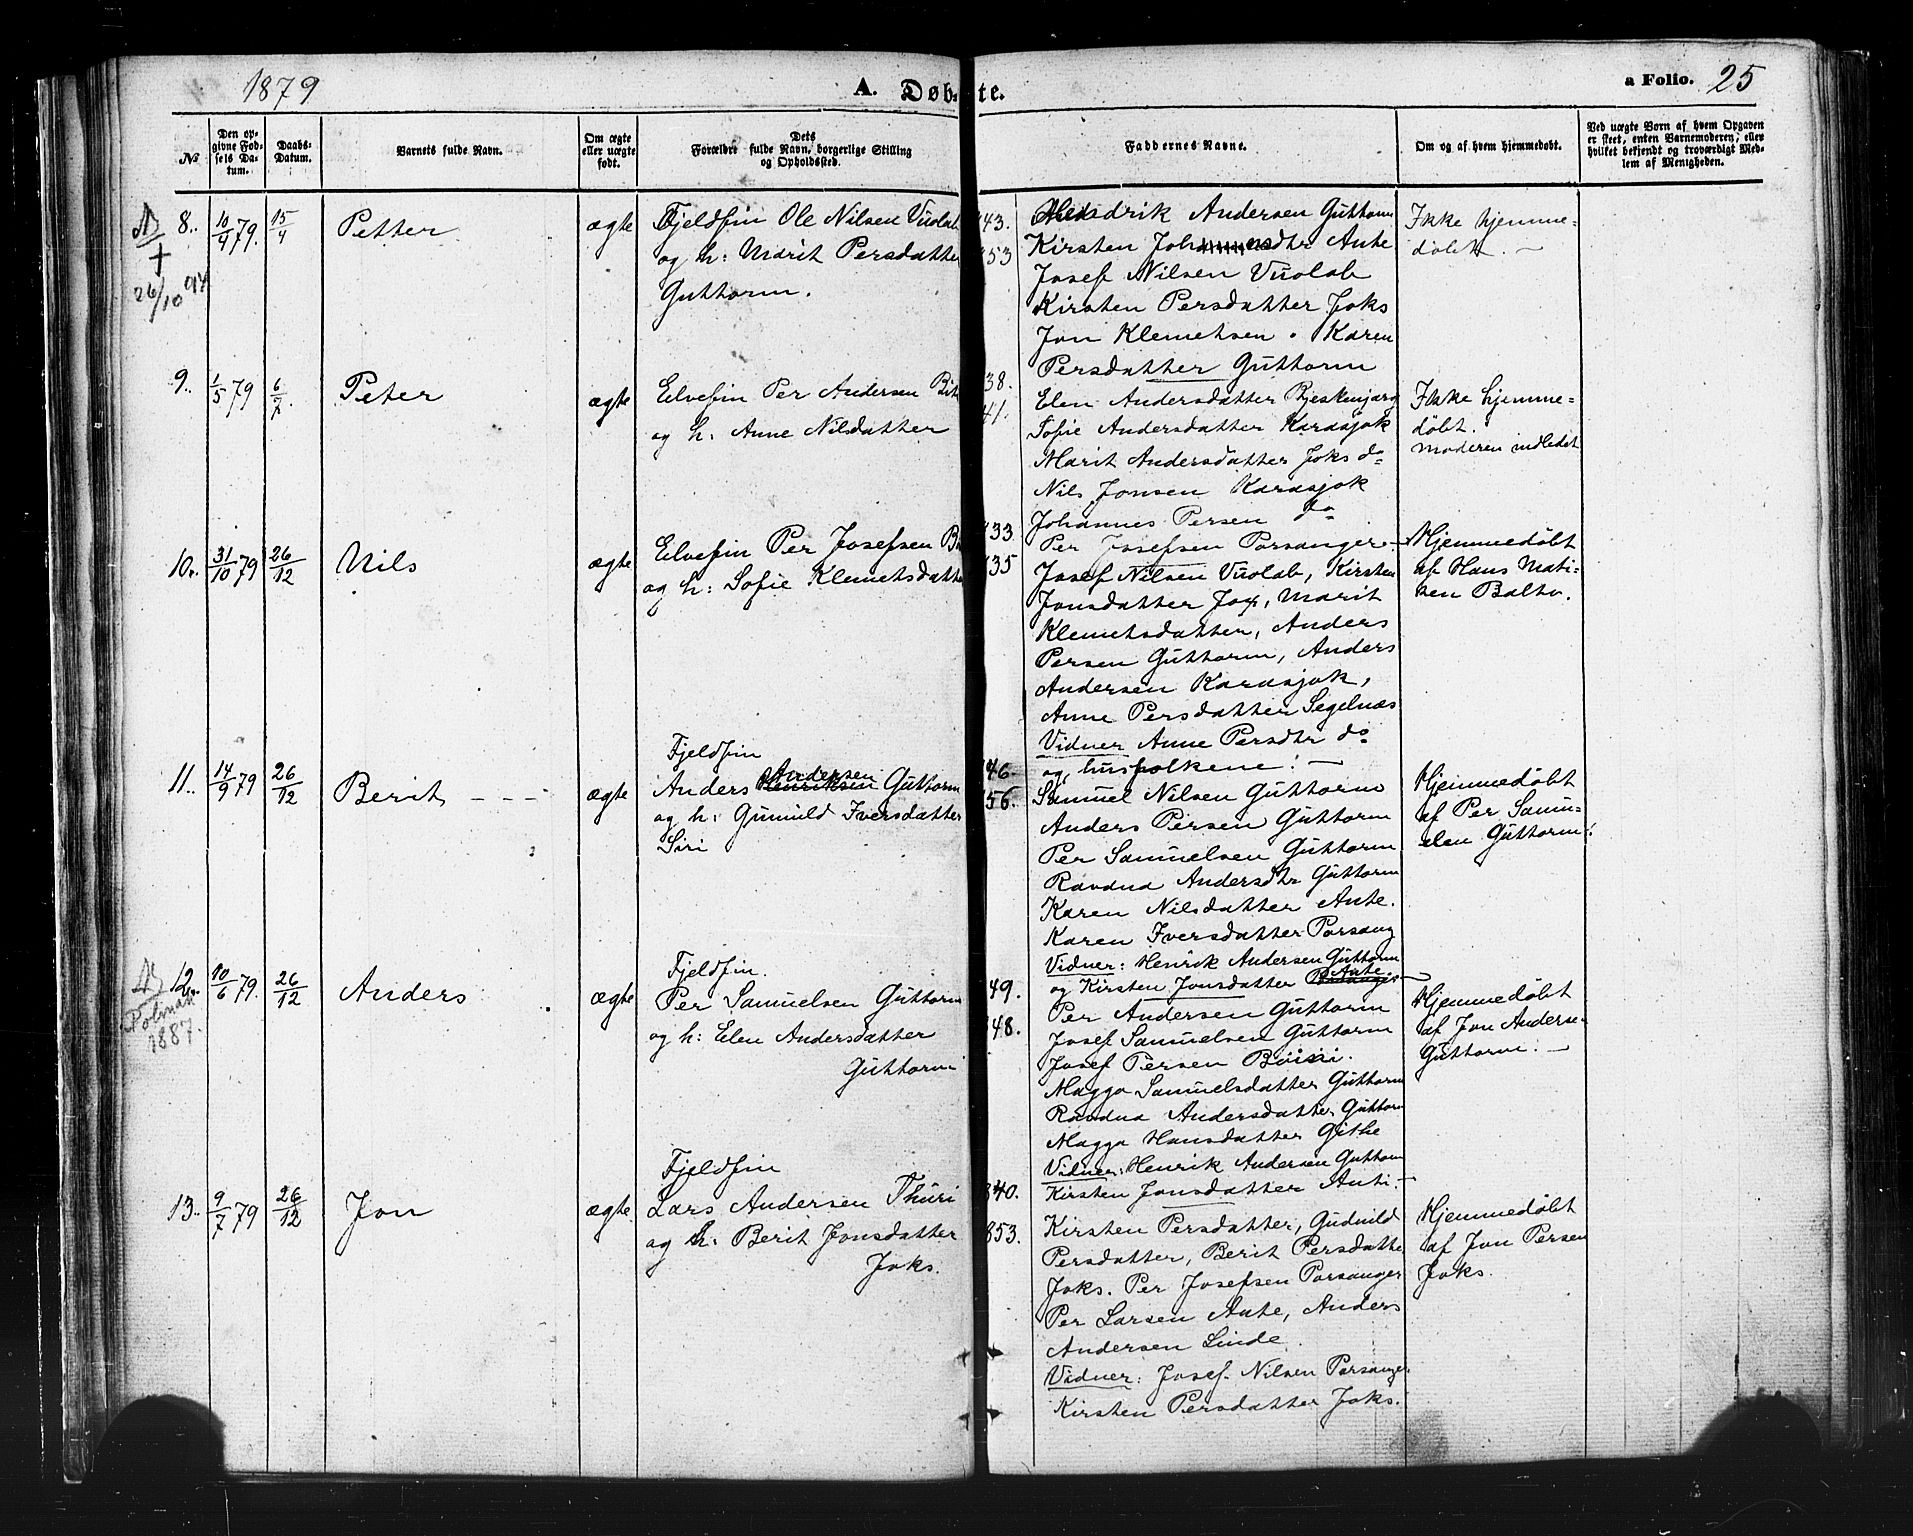 1879
A. Døbte.
a Folio. 25
№
Den op-
givne Fød-
sels Da-
tum.
Daabs-
Datum.
Barnets fulde Navn.
Om ægte
eller uægte
født.
Dets
Forældres fulde Navn, borgerlige Stilling
og Opholdssted.
Faddernes Navne.
Om og af hvem hjemmedøbt.
Ved uægte Born af hvem Opgaven
er skeet, enten Barnemoderen, eller
hvilket bekjendt og troværdigt Med-
lem af Menigheden.
†
26/10 94
8. 10/4 79. 15/4 Petter ægte
Fjeldfin Ole Nilsen Vuolab
og h: Marit Persdatter
Guttorm.
43.
53
Hendrik Andersen Guttorm
Kirsten Johannesdtr Ante
Josef Nilsen Vuolab
Kirsten Persdatter Joks
Jon Klemetsen . Karen
Persdatter Guttorm
Ikke hjemme-
døbt. —
9. 1/5 79 6/7. Peter ægte
Elvefin Per Andersen
og h: Anne Nilsdatter
38.
41.
Elen Andersdatter
Sofie Andersdatter Karasjok
Marit Andersdatter Joks do
Nils Jonsen Karasjok
Johannes Persen do
Per Josefsen Porsanger.
Ikke hjemme-
døbt.
Moderen indledet
10. 31/10 79 26/12 Nils ægte
Elvefin Per Josefsen
og h: Sofie Klemetsdatter
33.
35
Josef Nilsen Vuolab, Kirsten
Jonsdatter Jox, Marit
Klemetsdatter, Anders
Persen Guttorm, Anders
Andersen Karasjok,
Anne Persdatter Segelnæs
Vidner Anne Persdtr do
og husfolkene! —
Hjemmedøbt
af Hans Mati-
sen Balto.
11. 14/9 79 26/12 Berit - - - ægte
Fjeldfin
Andersen
Anders Henriksen Guttorm
og h: Gunnild Iversdatter
Siri
46.
56.
Samuel Nilsen Guttorm
Anders Persen Guttorm
Per Samuelsen Guttorm
Ravdna Andersdtr Guttorm
Karen Nilsdatter Ante.
Karen Iversdatter Porsang
Vidner: Henrik Andersen Guttorm
Ante
og Kirsten Jonsdatter
Hjemmedøbt
af Per Samu-
elsen Guttorm!
Polmak
1887.
12. 10/6 79. 26/12 Anders ægte
Fjeldfin.
Per Samuelsen Guttorm
og h: Elen Andersdatter
Guttorm
49.
48.
Per Andersen Guttorm
Josef Samuelsen Guttorm
Josef Persen
Magga Samuelsdatter Guttorm
Ravdna Andersdatter Guttorm
Magga Hansdatter Githe
Vidner: Henrik Andersen Guttorm
Kirsten Jonsdatter Anti. —
Hjemmedøbt
af Jon Anderse-
Guttorm. —
13. 9/7 79 26/12 Jon ægte.
Fjeldfin
Lars Andersen Thuri
og h: Berit Jonsdatter
Joks.
840.
853.
Kirsten Persdatter, Gudnild
Persdatter, Berit Persdatter
Joks. Per Josefsen Porsanger
Per Larsen Ante, Anders
Andersen Linde.
Vidner: Josef Nilsen Porsanger
Kirsten Persdatter Joks.
Hjemmedøbt
af Jon Persen
Joks.